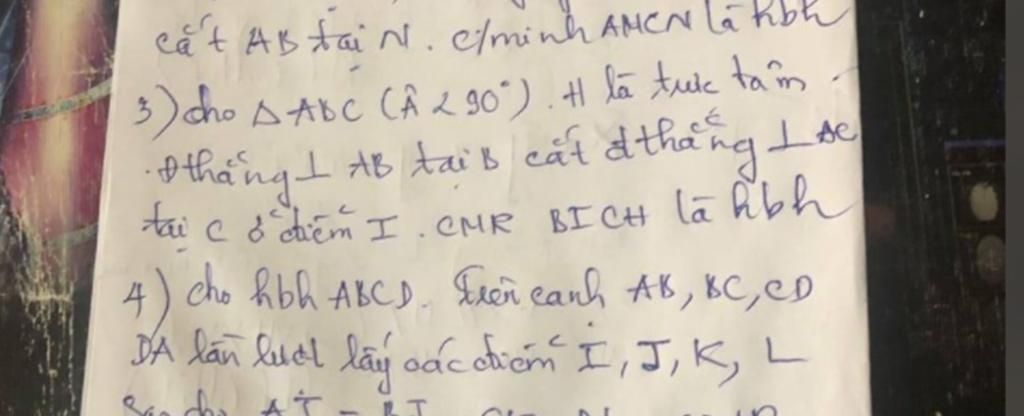 cắt AB tại N. c/minh AMCN là hbh
3) cho Δ ABC (Â < 90°). H là trực tâm.
đthẳng ⊥ AB tại B cắt đthẳng ⊥ AC
tại C ở điểm I. CMR BICH là hbh
4) cho hbh ABCD. Trên cạnh AB, BC, CD
DA lần lượt lấy các điểm I, J, K, L